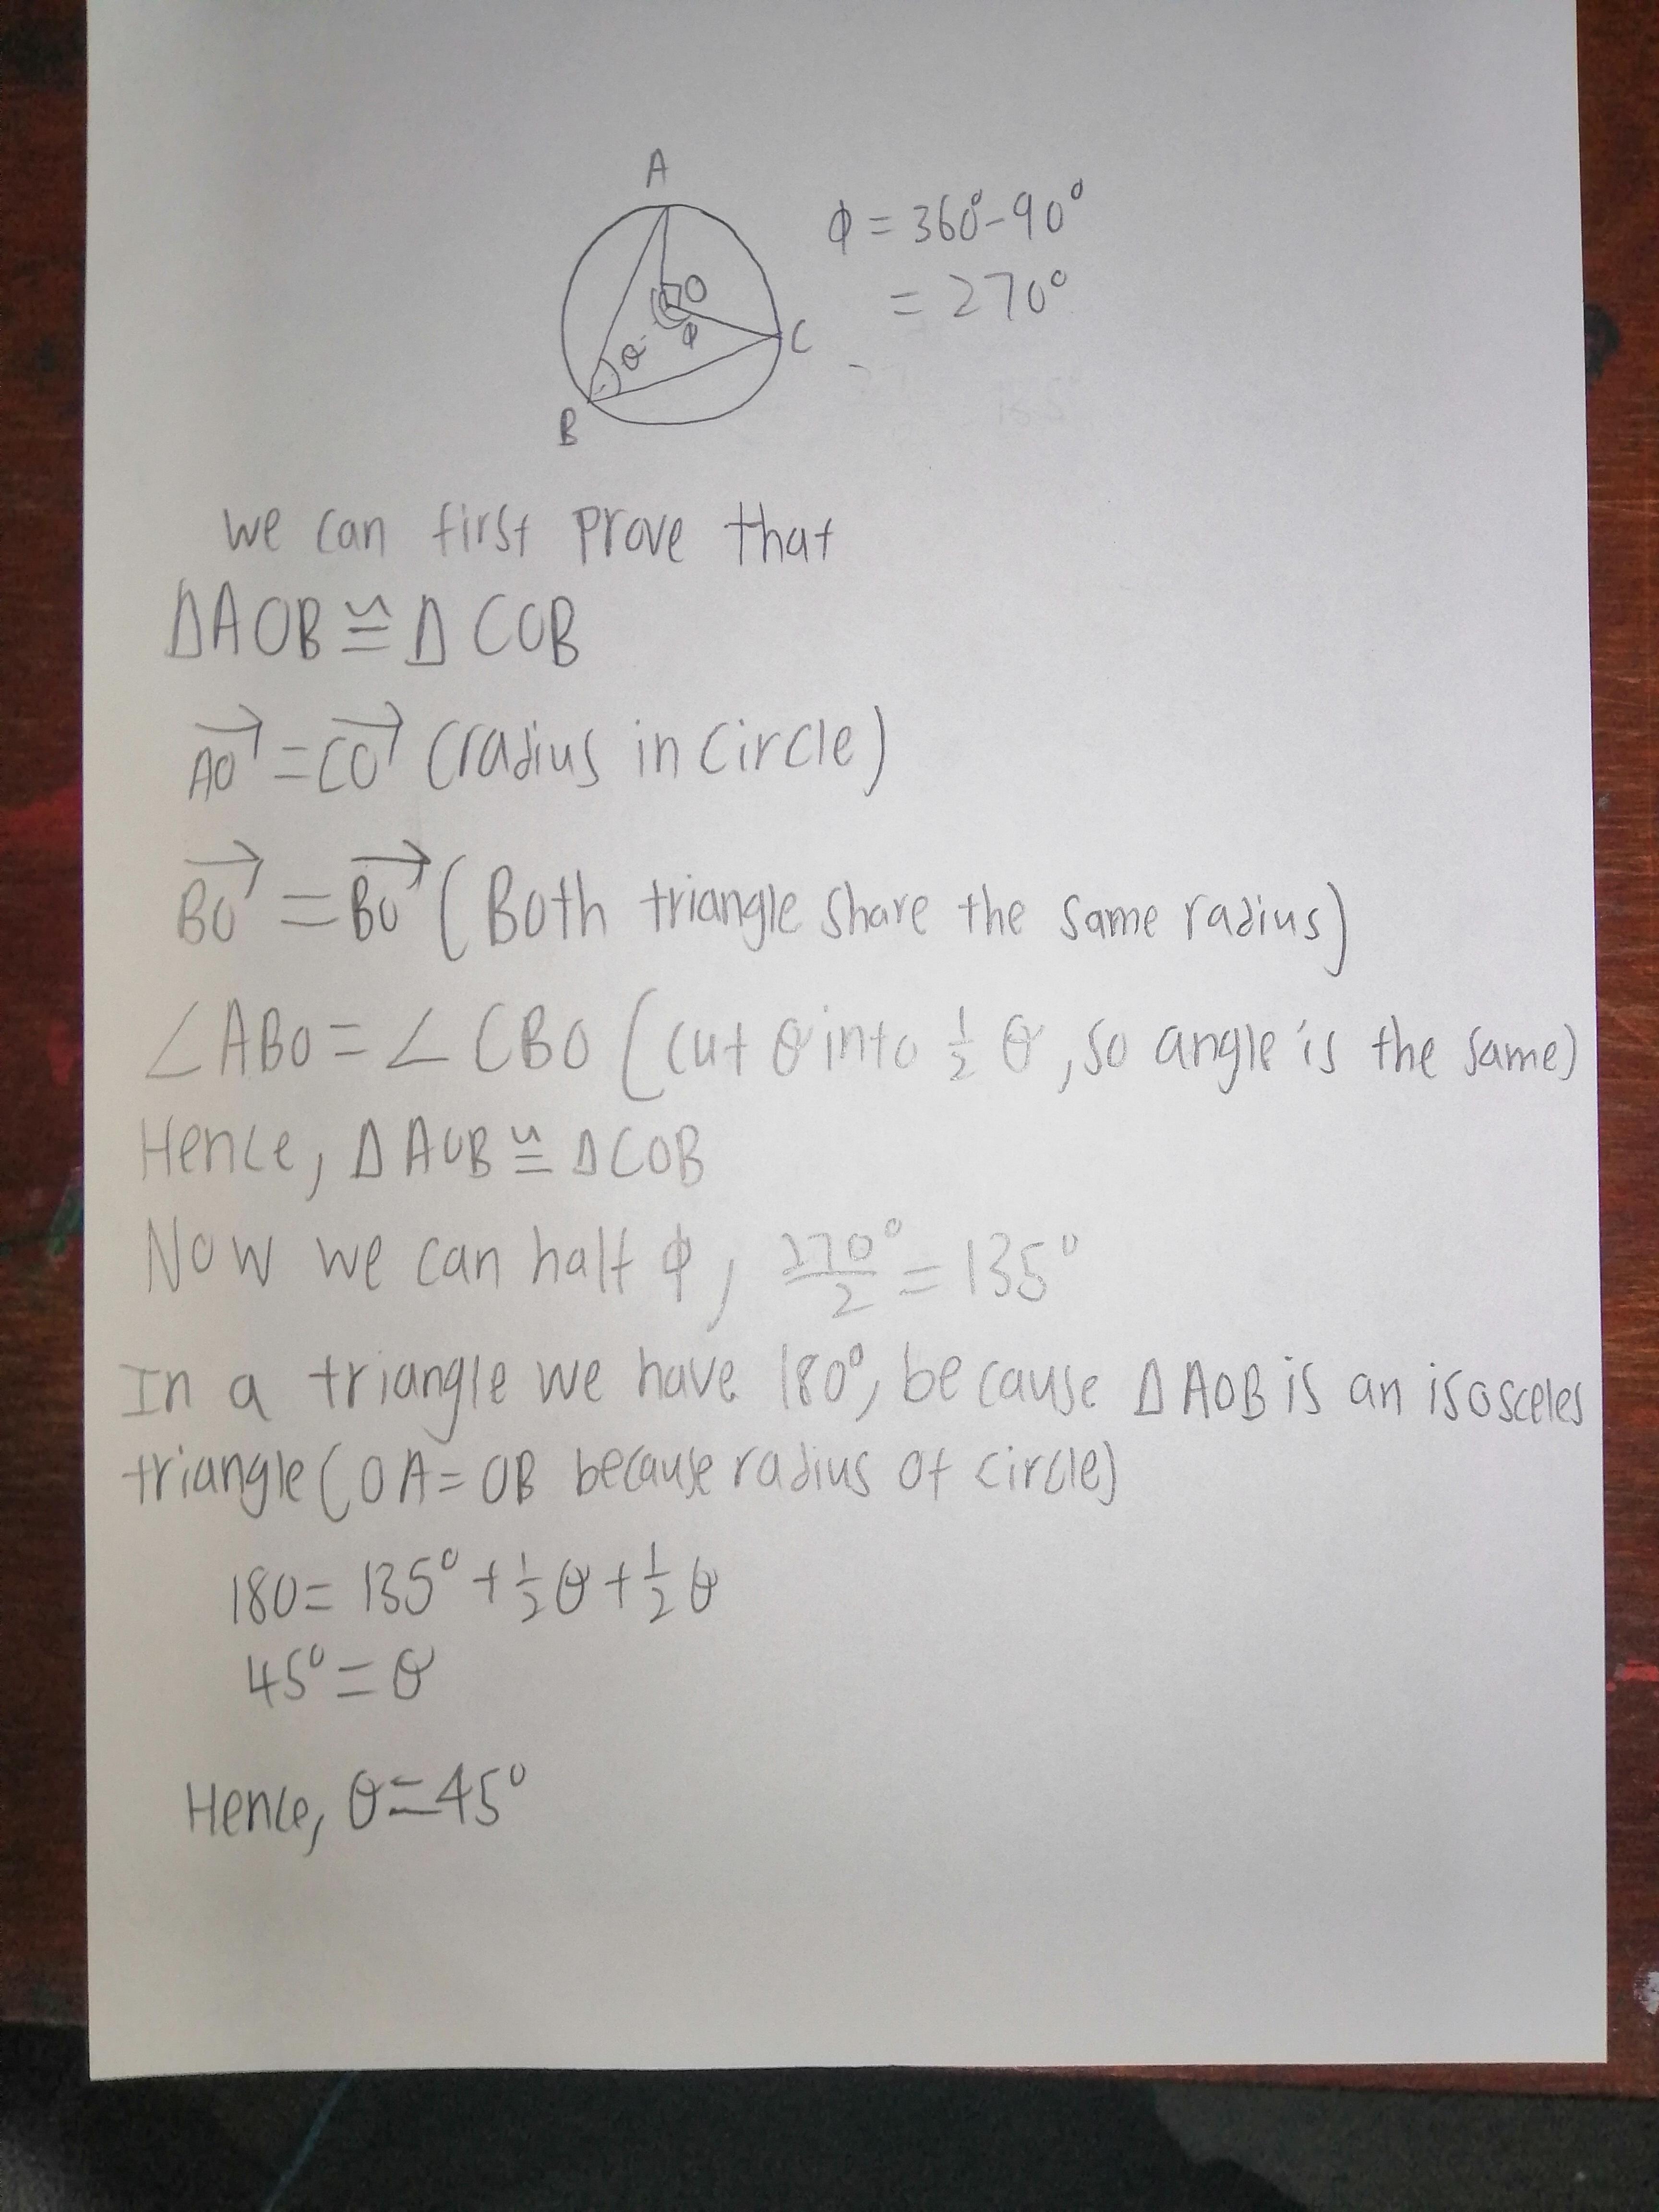 A
ϕ = 360°-90°
= 270°
O
ϕ
θ
C
B
we can first prove that
ΔAOB ≅ Δ COB
AO = CO (radius in circle)
BO = BO (Both triangle share the same radius)
∠ABO = ∠CBO (cut θ into 1/2 θ, so angle is the same)
Hence, ΔAOB ≅ ΔCOB
Now we can half ϕ, 270°/2 = 135°
In a triangle we have 180°, because ΔAOB is an isosceles
triangle (OA = OB because radius of circle)
180 = 135° + 1/2 θ + 1/2 θ
45° = θ
Hence, θ = 45°